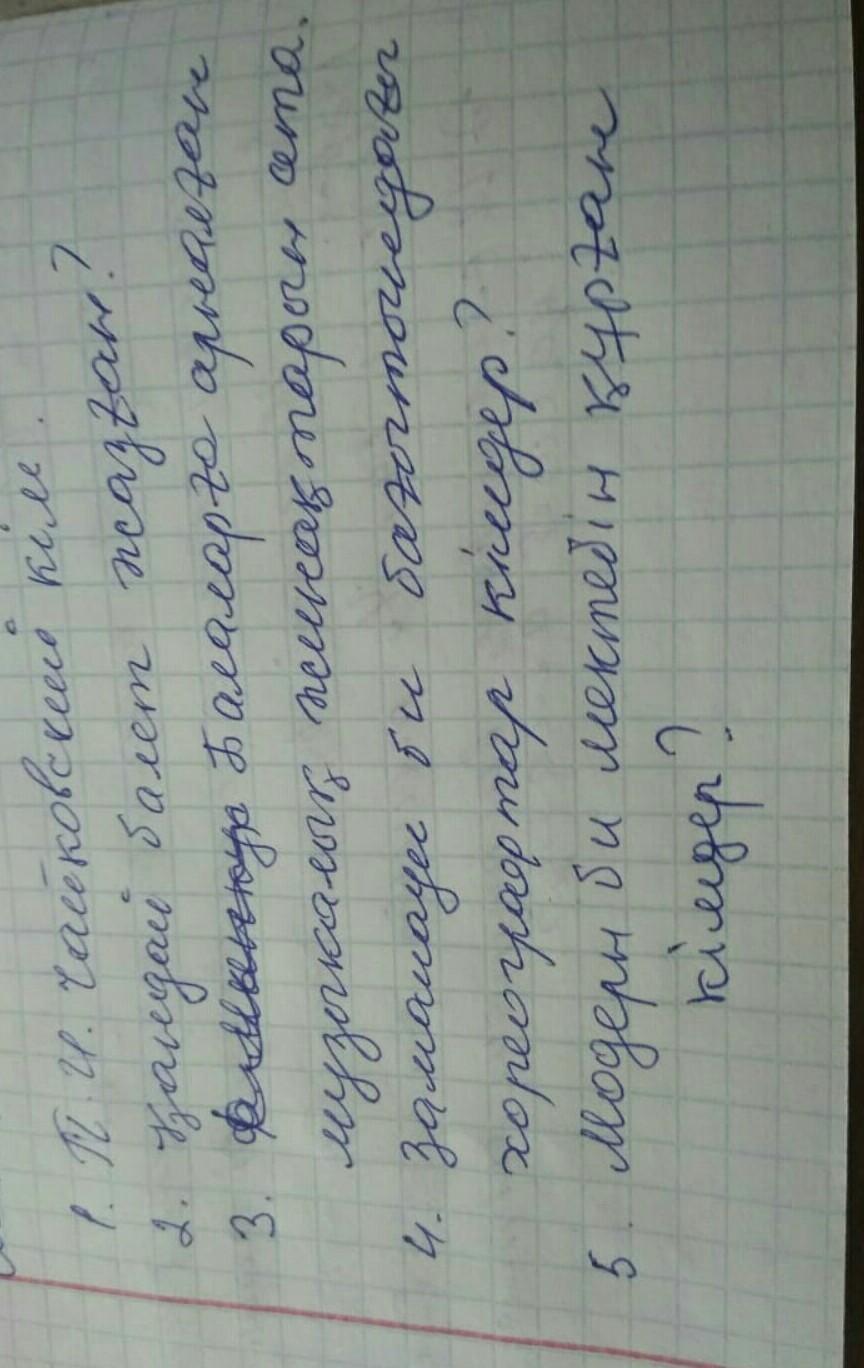 1. П.И. Чайковский кім.
2. Қандай балет жазған?
3. Балаларға арналған
музыкалық жинақтарын ата.
4. Заманауи би бағытындағы
хореографтар кімдер?
5. Модерн би мектебін құрған
кімдер?